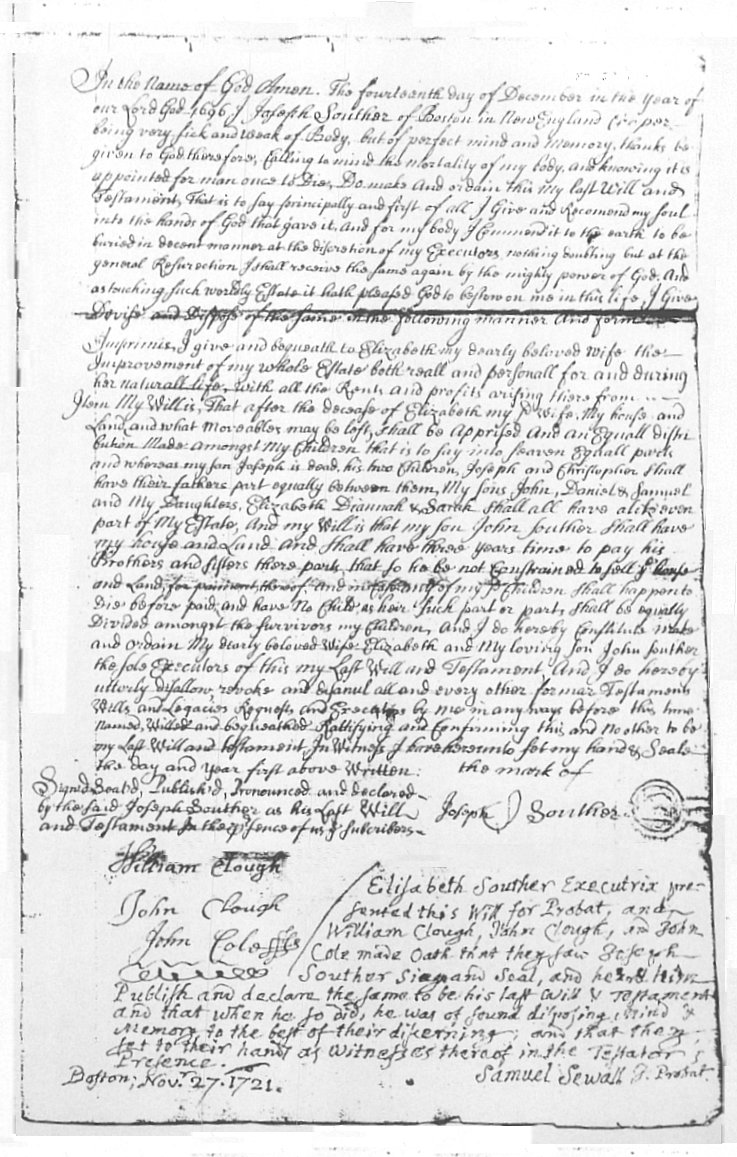 In the Name of God Amen. The fourteenth day of December in the Year of
our Lord God 1696 I Joseph Souther of Boston in New England Cooper
being very sick and weak of Body, but of perfect mind and Memory, thanks be
given to God therefore, Calling to mind the Mortality of my body, and knowing it is
appointed for man once to Dye, Do make And ordain this my last Will and
Testament, That is to say principally and first of all I Give and Recomend my soul
into the hands of God that gave it, And for my body I Commend it to the earth to be
buried in decent manner at the discretion of my Executors nothing doubting but at the
general Resurection I shall receive the same again by the mighty power of God; And
as touching such worldly Estate it hath pleased God to bestow on me in this life, I Give
Devise and Dispose of the same in the following manner And form
Imprimis, I give and bequeath to Elizabeth my dearly beloved Wife the
Improvement of my whole Estate both reall and personall for and during
her naturall life, with all the Rents and profits arising there from
Item My Will is, That after the decease of Elizabeth my sd Wife, My house and
Land and what Moveables may be left, shall be Apprised And an Equall distri
bution Made amongst My Children that is to say into seaven Equall parts
and whereas my son Joseph is dead, his two Children, Joseph and Christopher shall
have their fathers part equally between them, My sons John, Daniel & Samuel
and My Daughters, Elizabeth Diannah & Sarah shall all have alike even
part of My Estate, And my Will is that my son John souther shall have
my house and Land And shall have three years time to pay his
Brothers and sisters there parts that so he be not Constrained to sell ye house
and Land, for paiment thereof. And in Case any of my sd Children shall happen to
die before paid, and have No Child as heir such part or parts shall be equally
Divided amongst the survivors my Children, And I do hereby Constitute make
and Ordain My dearly beloved Wife Elizabeth and My loving son John Souther
the sole Executors of this my Last Will and Testament And I do hereby
utterly disallow, revoke and disanul all and every other former Testaments
Wills and Legacies Requests and Executors by me in any ways before this time
Named, Willed and bequeathed Rattifying and Confirming this and No other to be
my Last Will and testament, In Witness I have hereunto set my hand & Seale
the day and year first above Written: the mark of
Signed Seal'd, Publish'd, Pronounced and declared
by the said Joseph Souther as his Last Will Joseph Souther
and Testament In the psence of us ye Subcribers
William Clough
John Clough
John Cole
Elisabeth Souther Executrix pre-
sented this Will for Probat, and
William Clough, John Clough, and John
Cole made Oath that they saw Joseph
Souther Sign and Seal, and heard him
Publish and declare the same to be his last Will & Testament
and that when he so did, he was of sound disposing Mind &
Memory to the best of their discerning; and that they
set to their hands as Witnesses thereof in the Testators
Presence.
Boston; Novr. 27. 1721. Samuel Sewall J. Probat.